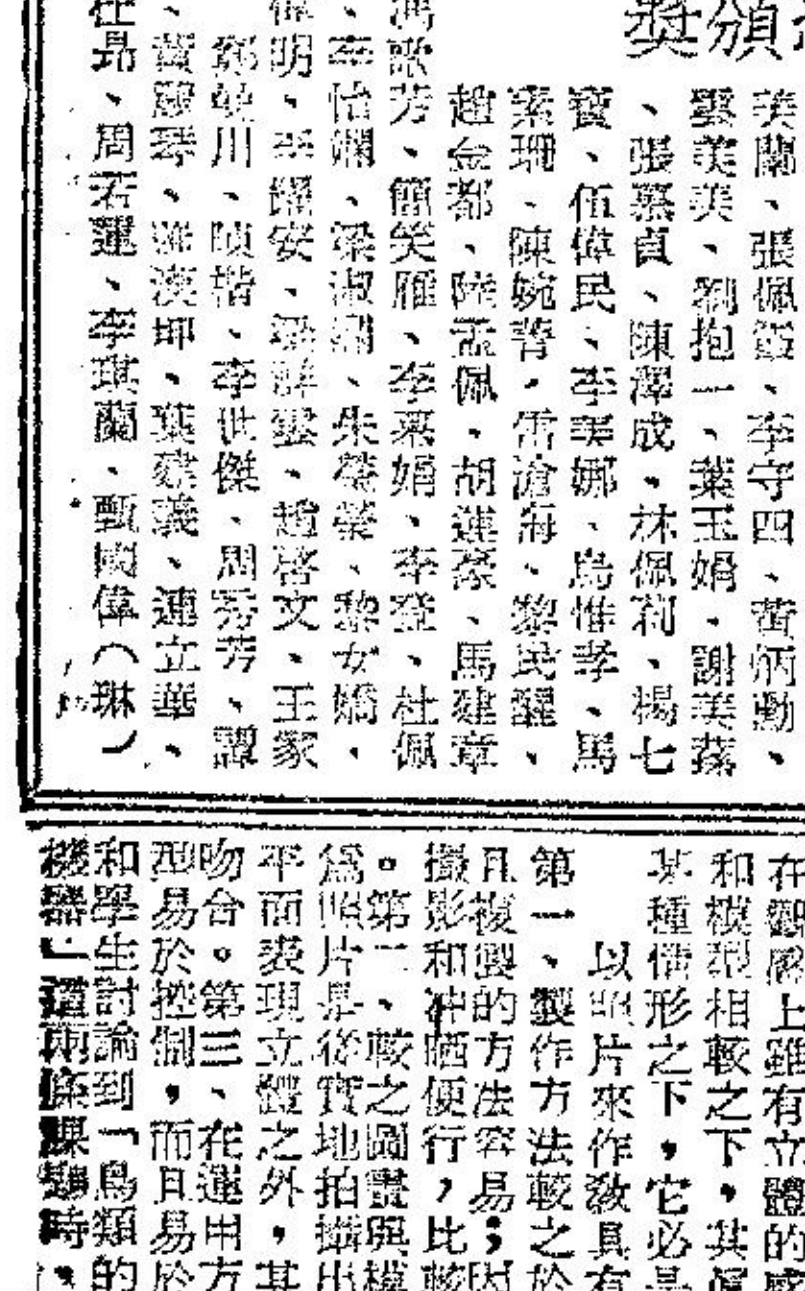 頒獎
美蘭、張佩、李守四、黃炳勳、
雲美美、劉抱一、葉玉娟、謝美蓀
、張慕貞、陳澤成、林佩莉、楊七
寶、伍偉民、李美娜、烏惟孝、馬
素珊、陳婉菁、雷滄海、黎民醒、
趙金都、陸孟佩、胡連泰、馬建章
馮歌芳、簡笑雁、李慕娟、李登、杜佩
、李怡嫻、梁淑、朱榮、黎女嬌、
明、李耀安、雲、趙啓文、王家
鄭川、楷、李世傑、周秀芳、譚
、黃琴、漢坤、葉建義、連立華、
杜昂、周若蓮、李琪蘭、甄國偉（琳）
在觀感上雖有立體的感
和模型相較之下，其眞
某種情形之下，它必是
以照片來作教具有
第一、製作方法較之於
且複製的方法容易；因
攝影和冲晒便行，比較
。第二、較之圖畫與模
爲照片是從實地拍攝出
平面表現立體之外，其
吻合。第三、在運用方
型易於控制，而且易於
和學生討論到「鳥類的
機器」這兩條課題時，